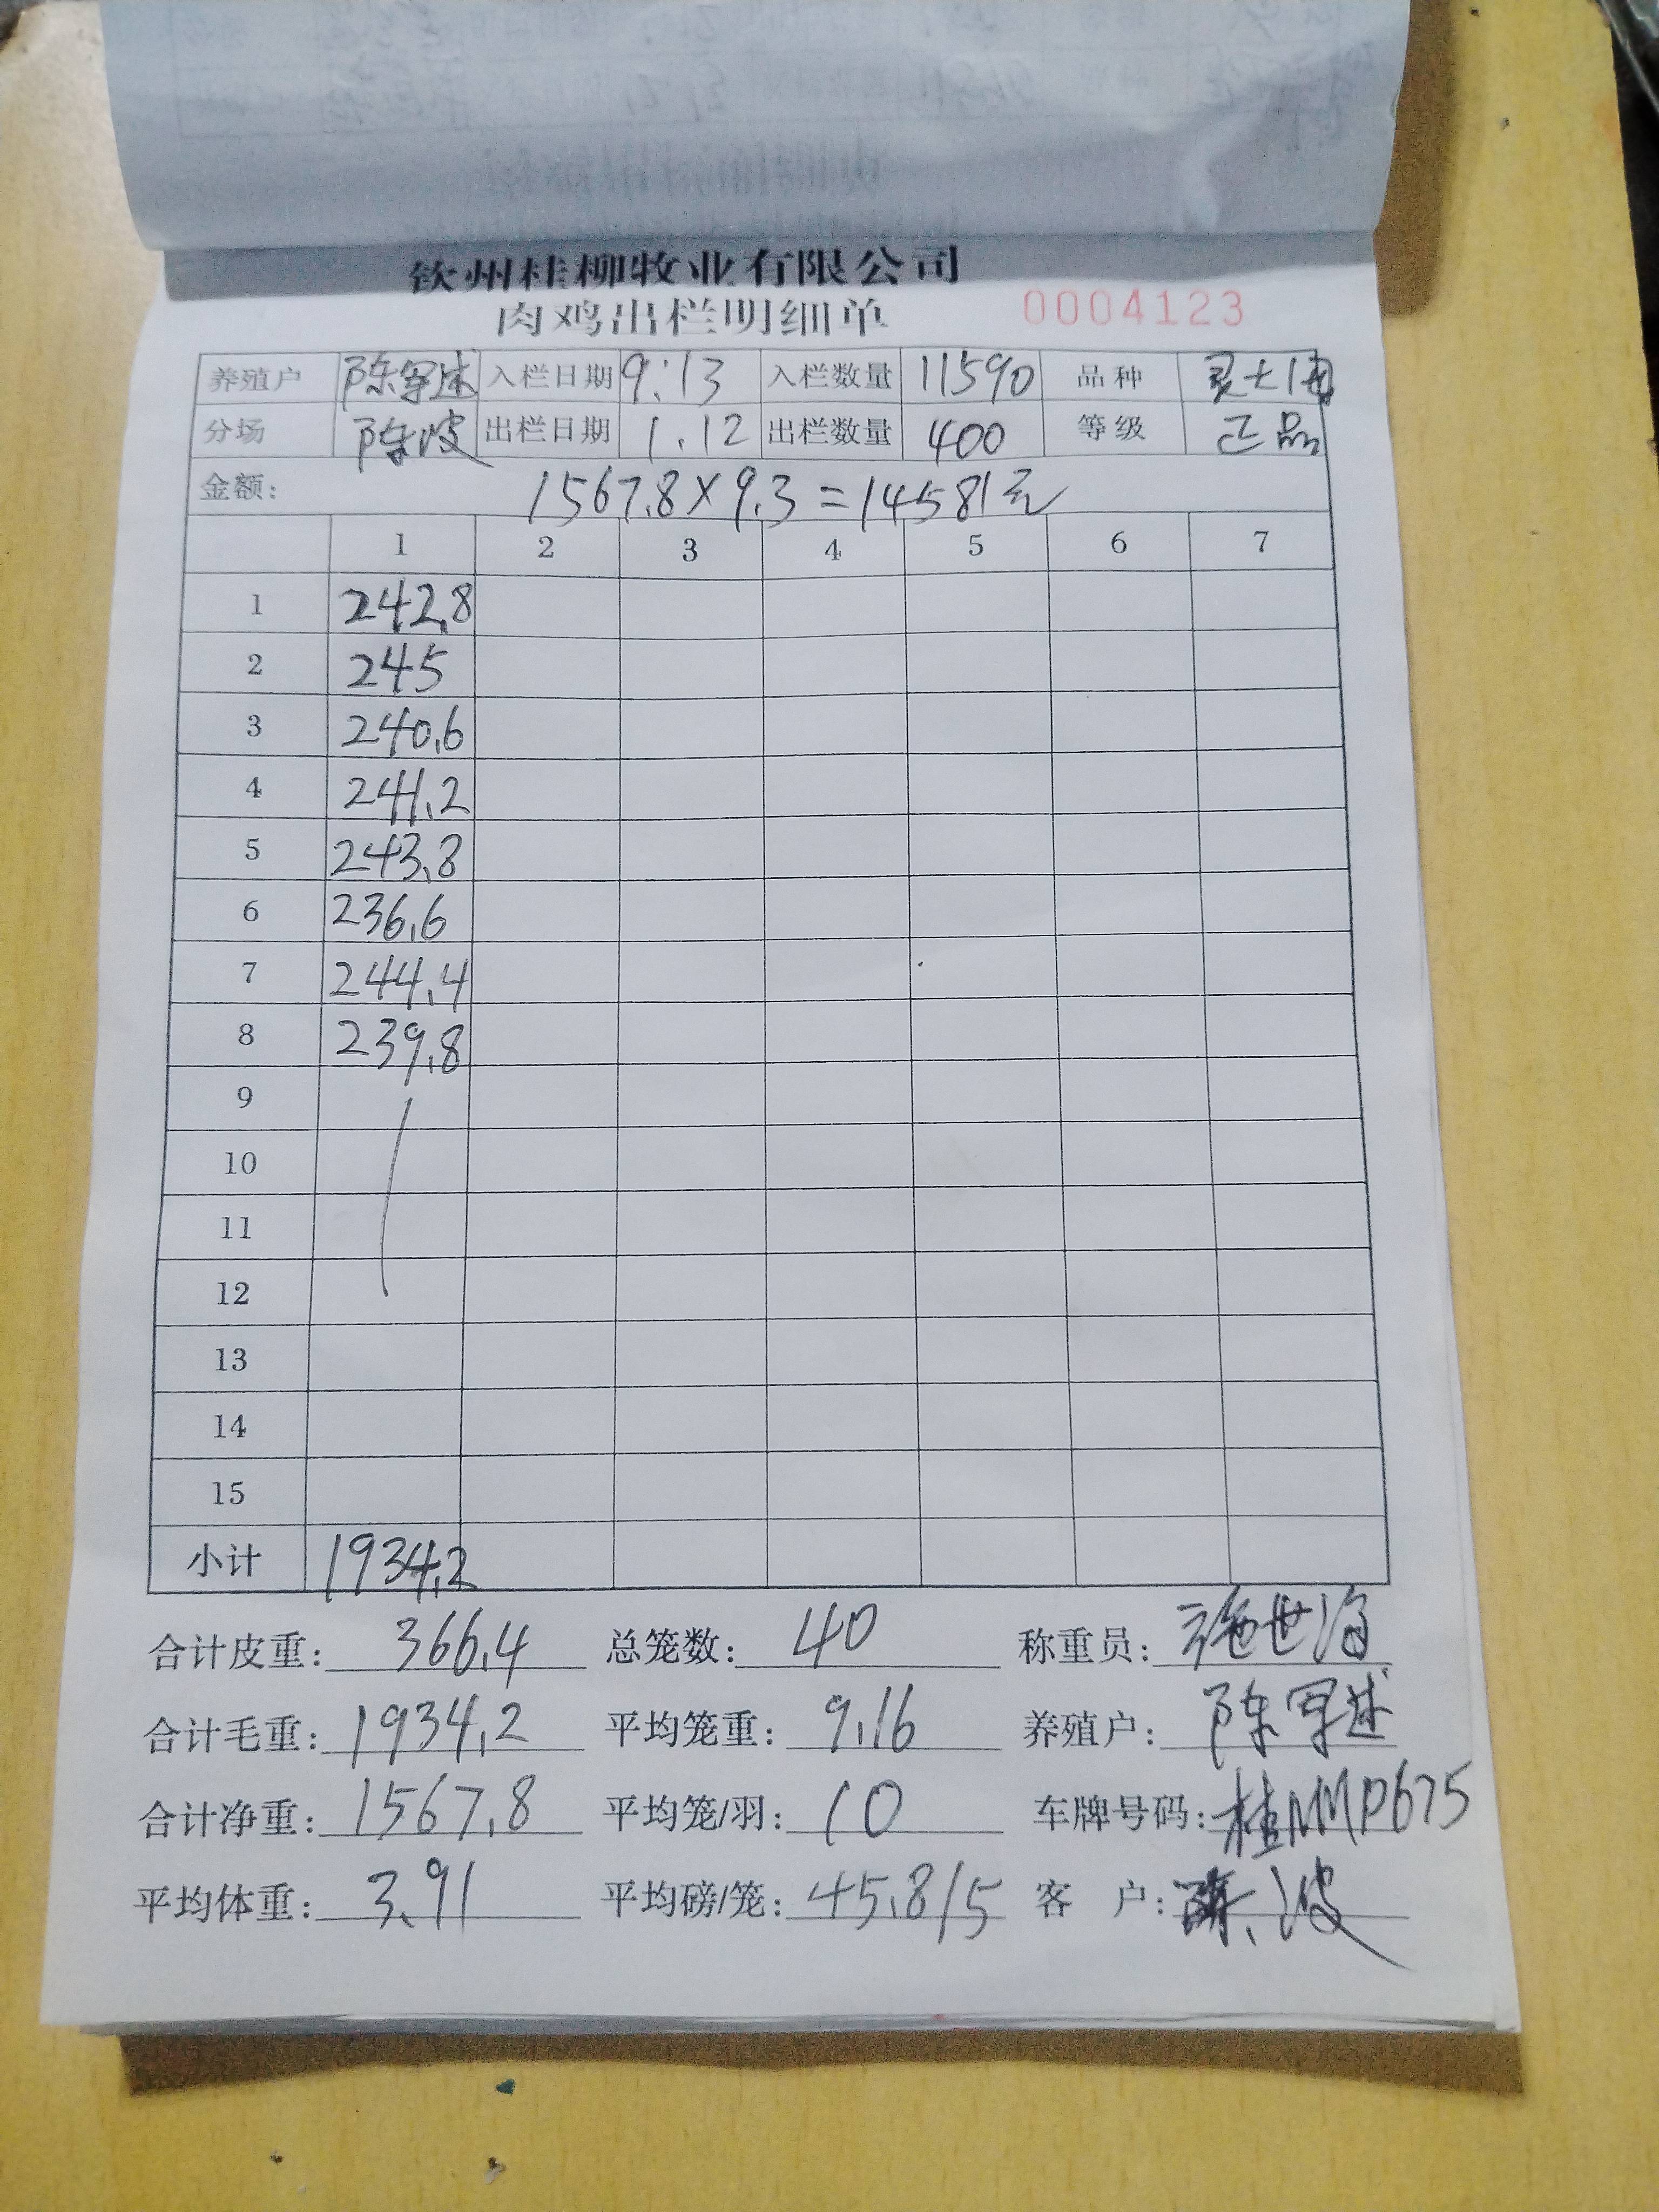 钦州桂柳牧业有限公司
肉鸡出栏明细单 0004123
养殖户 陈军述 入栏日期 9.13 入栏数量 11590 品种 灵土
分场 陈波 出栏日期 1.12 出栏数量 400 等级 正品
金额: 1567.8×9.3=14581元
1 2 3 4 5 6 7
1 242.8
2 245
3 240.6
4 241.2
5 243.8
6 236.6
7 244.4
8 239.8
9
10
11
12
13
14
15
小计 1934.2
合计皮重: 366.4 总笼数: 40 称重员: 施世海
合计毛重: 1934.2 平均笼重: 9.16 养殖户: 陈军述
合计净重: 1567.8 平均笼/羽: 10 车牌号码: 桂NMP675
平均体重: 3.91 平均磅/笼: 45.8/5 客 户: 陈波